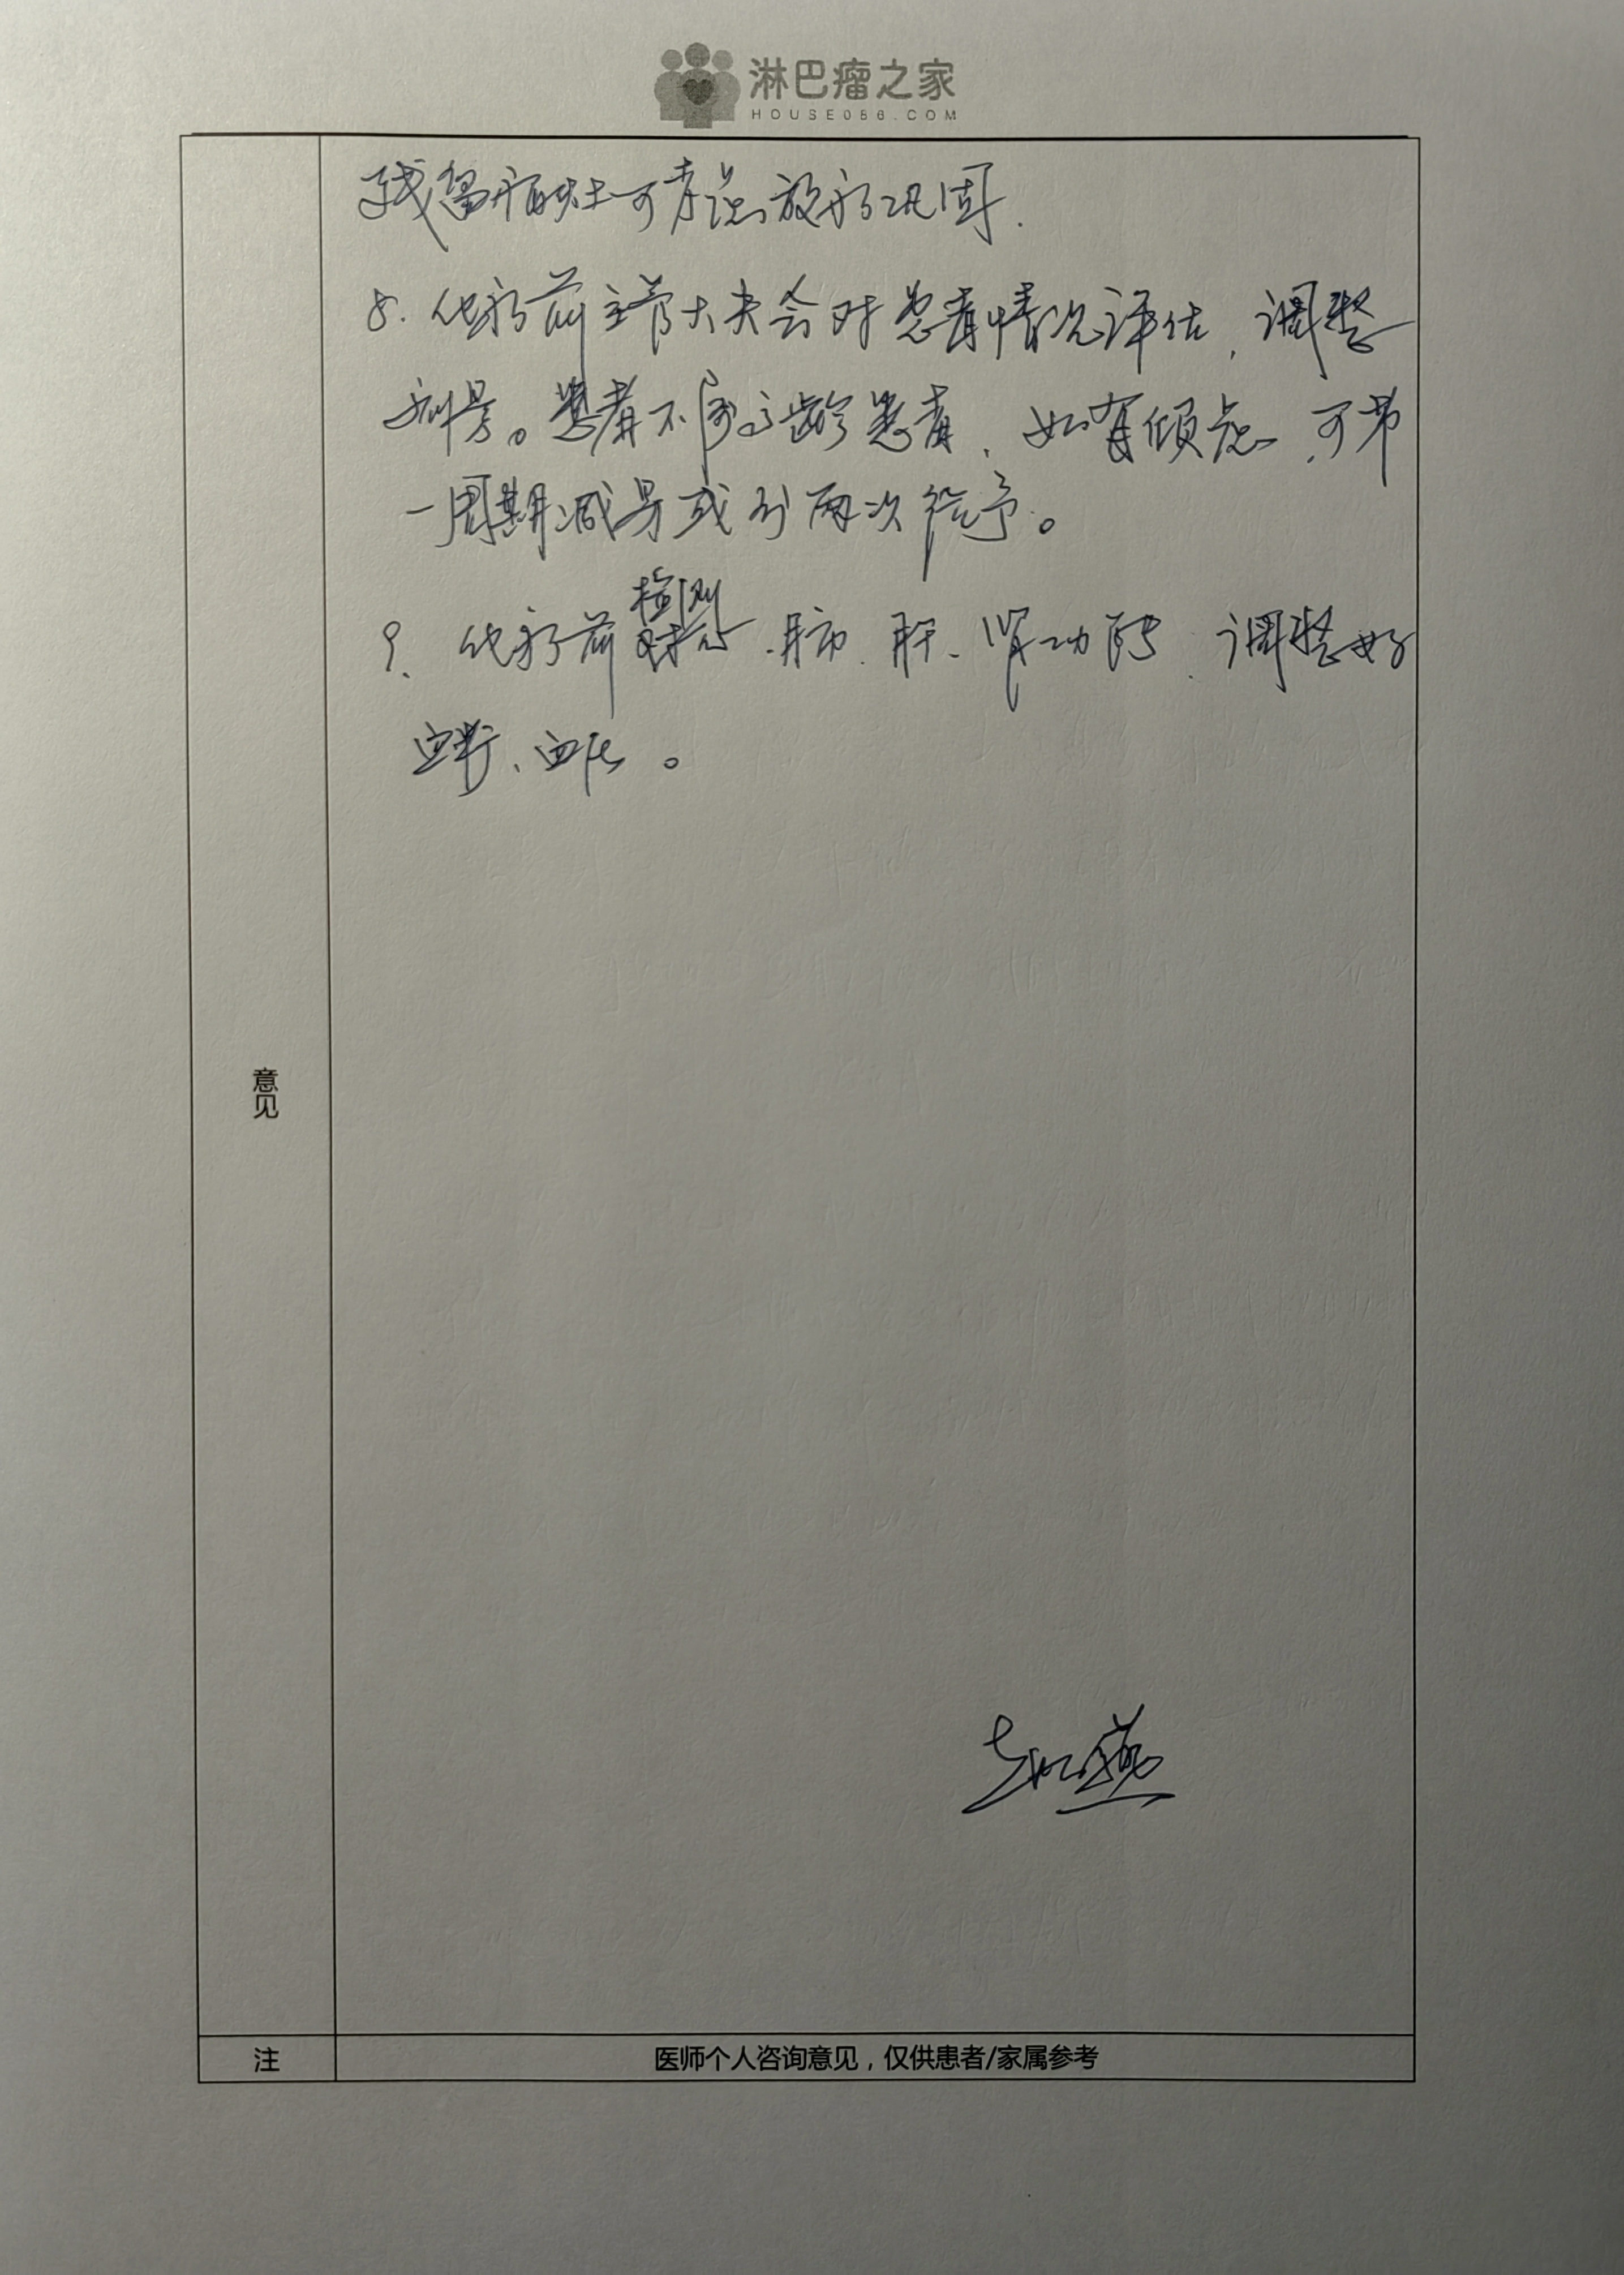 淋巴瘤之家
HOUSE086.COM
残留病灶可考虑放疗巩固.
8. 化疗前主管大夫会对患者情况评估,调整
剂量。患者不属高龄患者,如有顾虑,可第
一周期减量或分两次给予。
检测
9. 化疗前心、肺、肝、肾功能,调整好
血糖、血压。
意见
注
医师个人咨询意见,仅供患者/家属参考